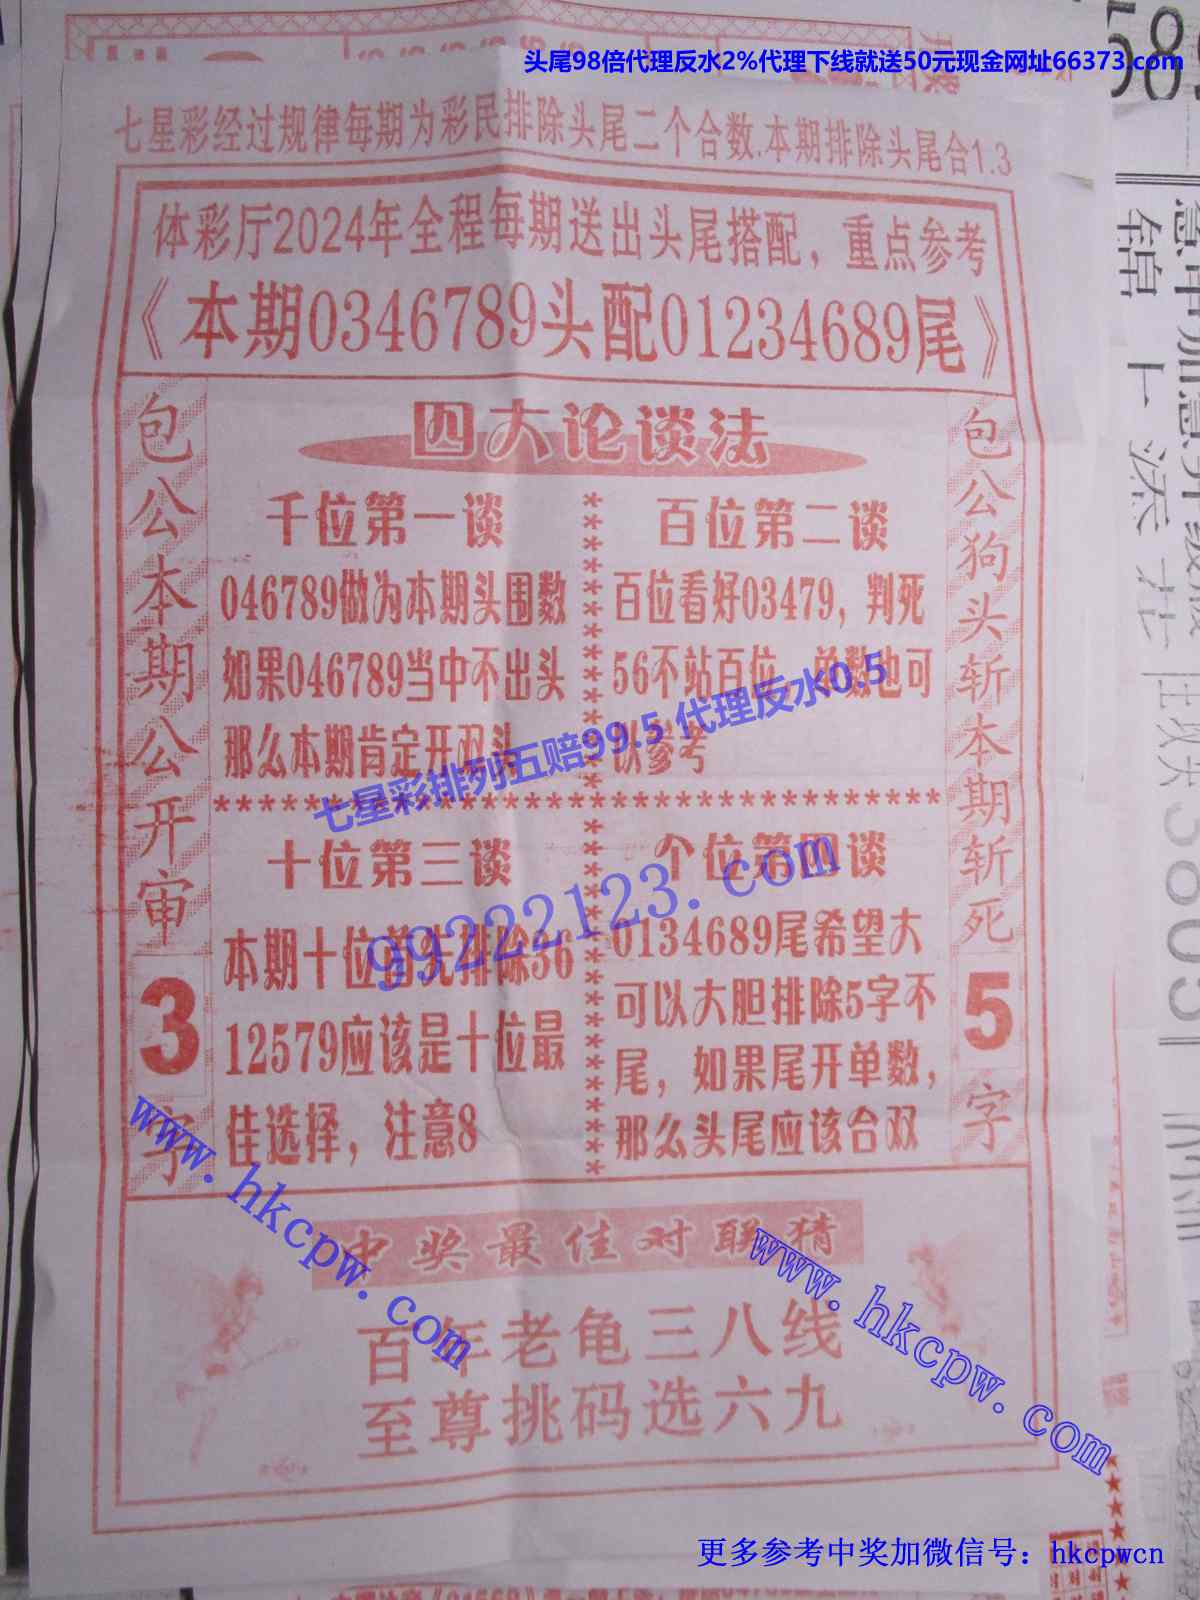 头尾98倍代理反水2%代理下线就送50元现金网址66373.com
七星彩经过规律每期为彩民排除头尾二个合数.本期排除头尾合1.3
体彩厅2024年全程每期送出头尾搭配，重点参考
《本期0346789头配01234689尾》
包公本期公开审3字
四大论谈法
千位第一谈
046789做为本期头围数
如果046789当中不出头
那么本期肯定开双头
百位第二谈
百位看好03479，判死
56不站百位，单数也可
以参考
七星彩排列五赔99.5 代理反水0.5
****************************************
十位第三谈
本期十位首先排除36
12579应该是十位最
佳选择，注意8
个位第四谈
0134689尾希望大
可以大胆排除5字不
尾，如果尾开单数，
那么头尾应该合双
99222123.com
包公狗头斩本期斩死5字
www.hkcpw.com
中奖最佳对联猜
www.hkcpw.com
百年老龟三八线
至尊挑码选六九
更多参考中奖加微信号：hkcpwcn